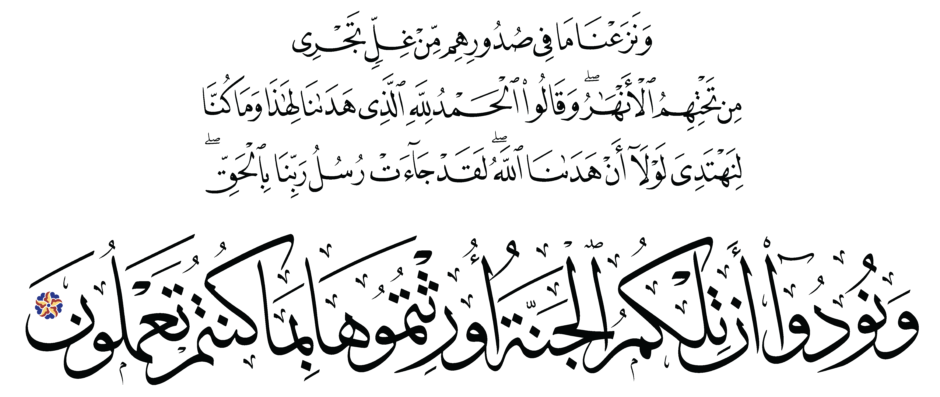 وَنَزَعْنَا مَا فِى صُدُورِهِم مِّنْ غِلٍّ تَجْرِى
مِن تَحْتِهِمُ ٱلْأَنْهَـٰرُ ۖ وَقَالُوا۟ ٱلْحَمْدُ لِلَّهِ ٱلَّذِى هَدَىٰنَا لِهَـٰذَا وَمَا كُنَّا
لِنَهْتَدِىَ لَوْلَآ أَنْ هَدَىٰنَا ٱللَّهُ ۖ لَقَدْ جَآءَتْ رُسُلُ رَبِّنَا بِٱلْحَقِّ ۖ
وَنُودُوٓا۟ أَن تِلْكُمُ ٱلْجَنَّةُ أُورِثْتُمُوهَا بِمَا كُنتُمْ تَعْمَلُونَ